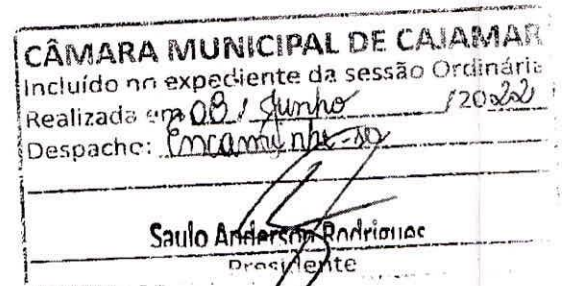 CÂMARA MUNICIPAL DE CAJAMAR
Incluído no expediente da sessão Ordinária
Realizada em 08 / Junho /2022
Despacho: Encaminhe-se
Saulo Anderson Rodrigues
Presidente